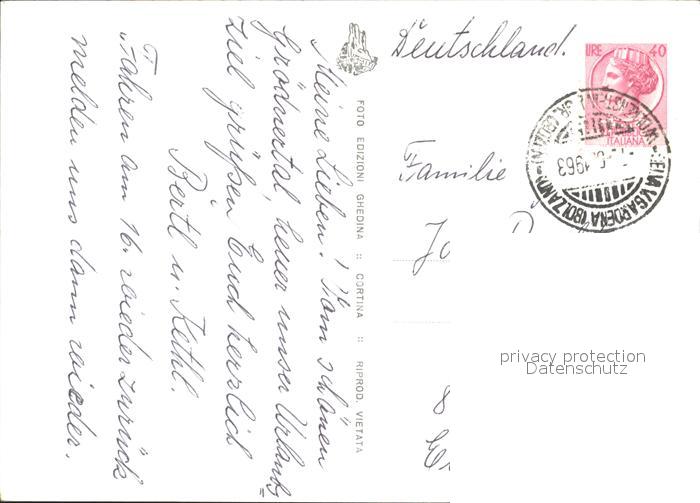 Meine Lieben! Vom schönen
Grödnertal, heuer unser Urlaubs
ziel grüßen Euch herzlich
Bertl u. Kethl.
Fahren am 16. wieder zurück
melden uns dann wieder.
FOTO EDIZIONI GHEDINA :: CORTINA :: RIPROD. VIETATA
Deutschland.
LIRE 40
ITALIANA
1963
GARDENA (BOLZANO)
Familie
Jo
8
privacy protection
Datenschutz